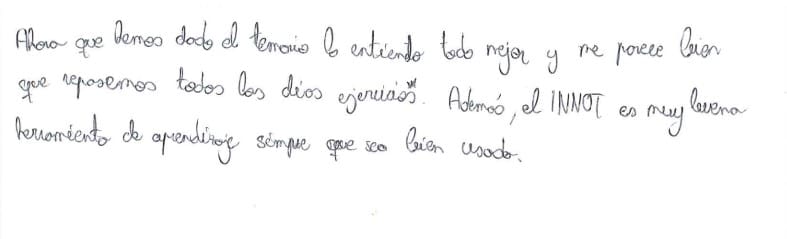 Ahora que hemos dado el temario lo entiendo todo mejor y me parece bien
que repasemos todos los días ejercicios. Además, el INNOT es muy buena
herramienta de aprendizaje sempre que sea bien usada.